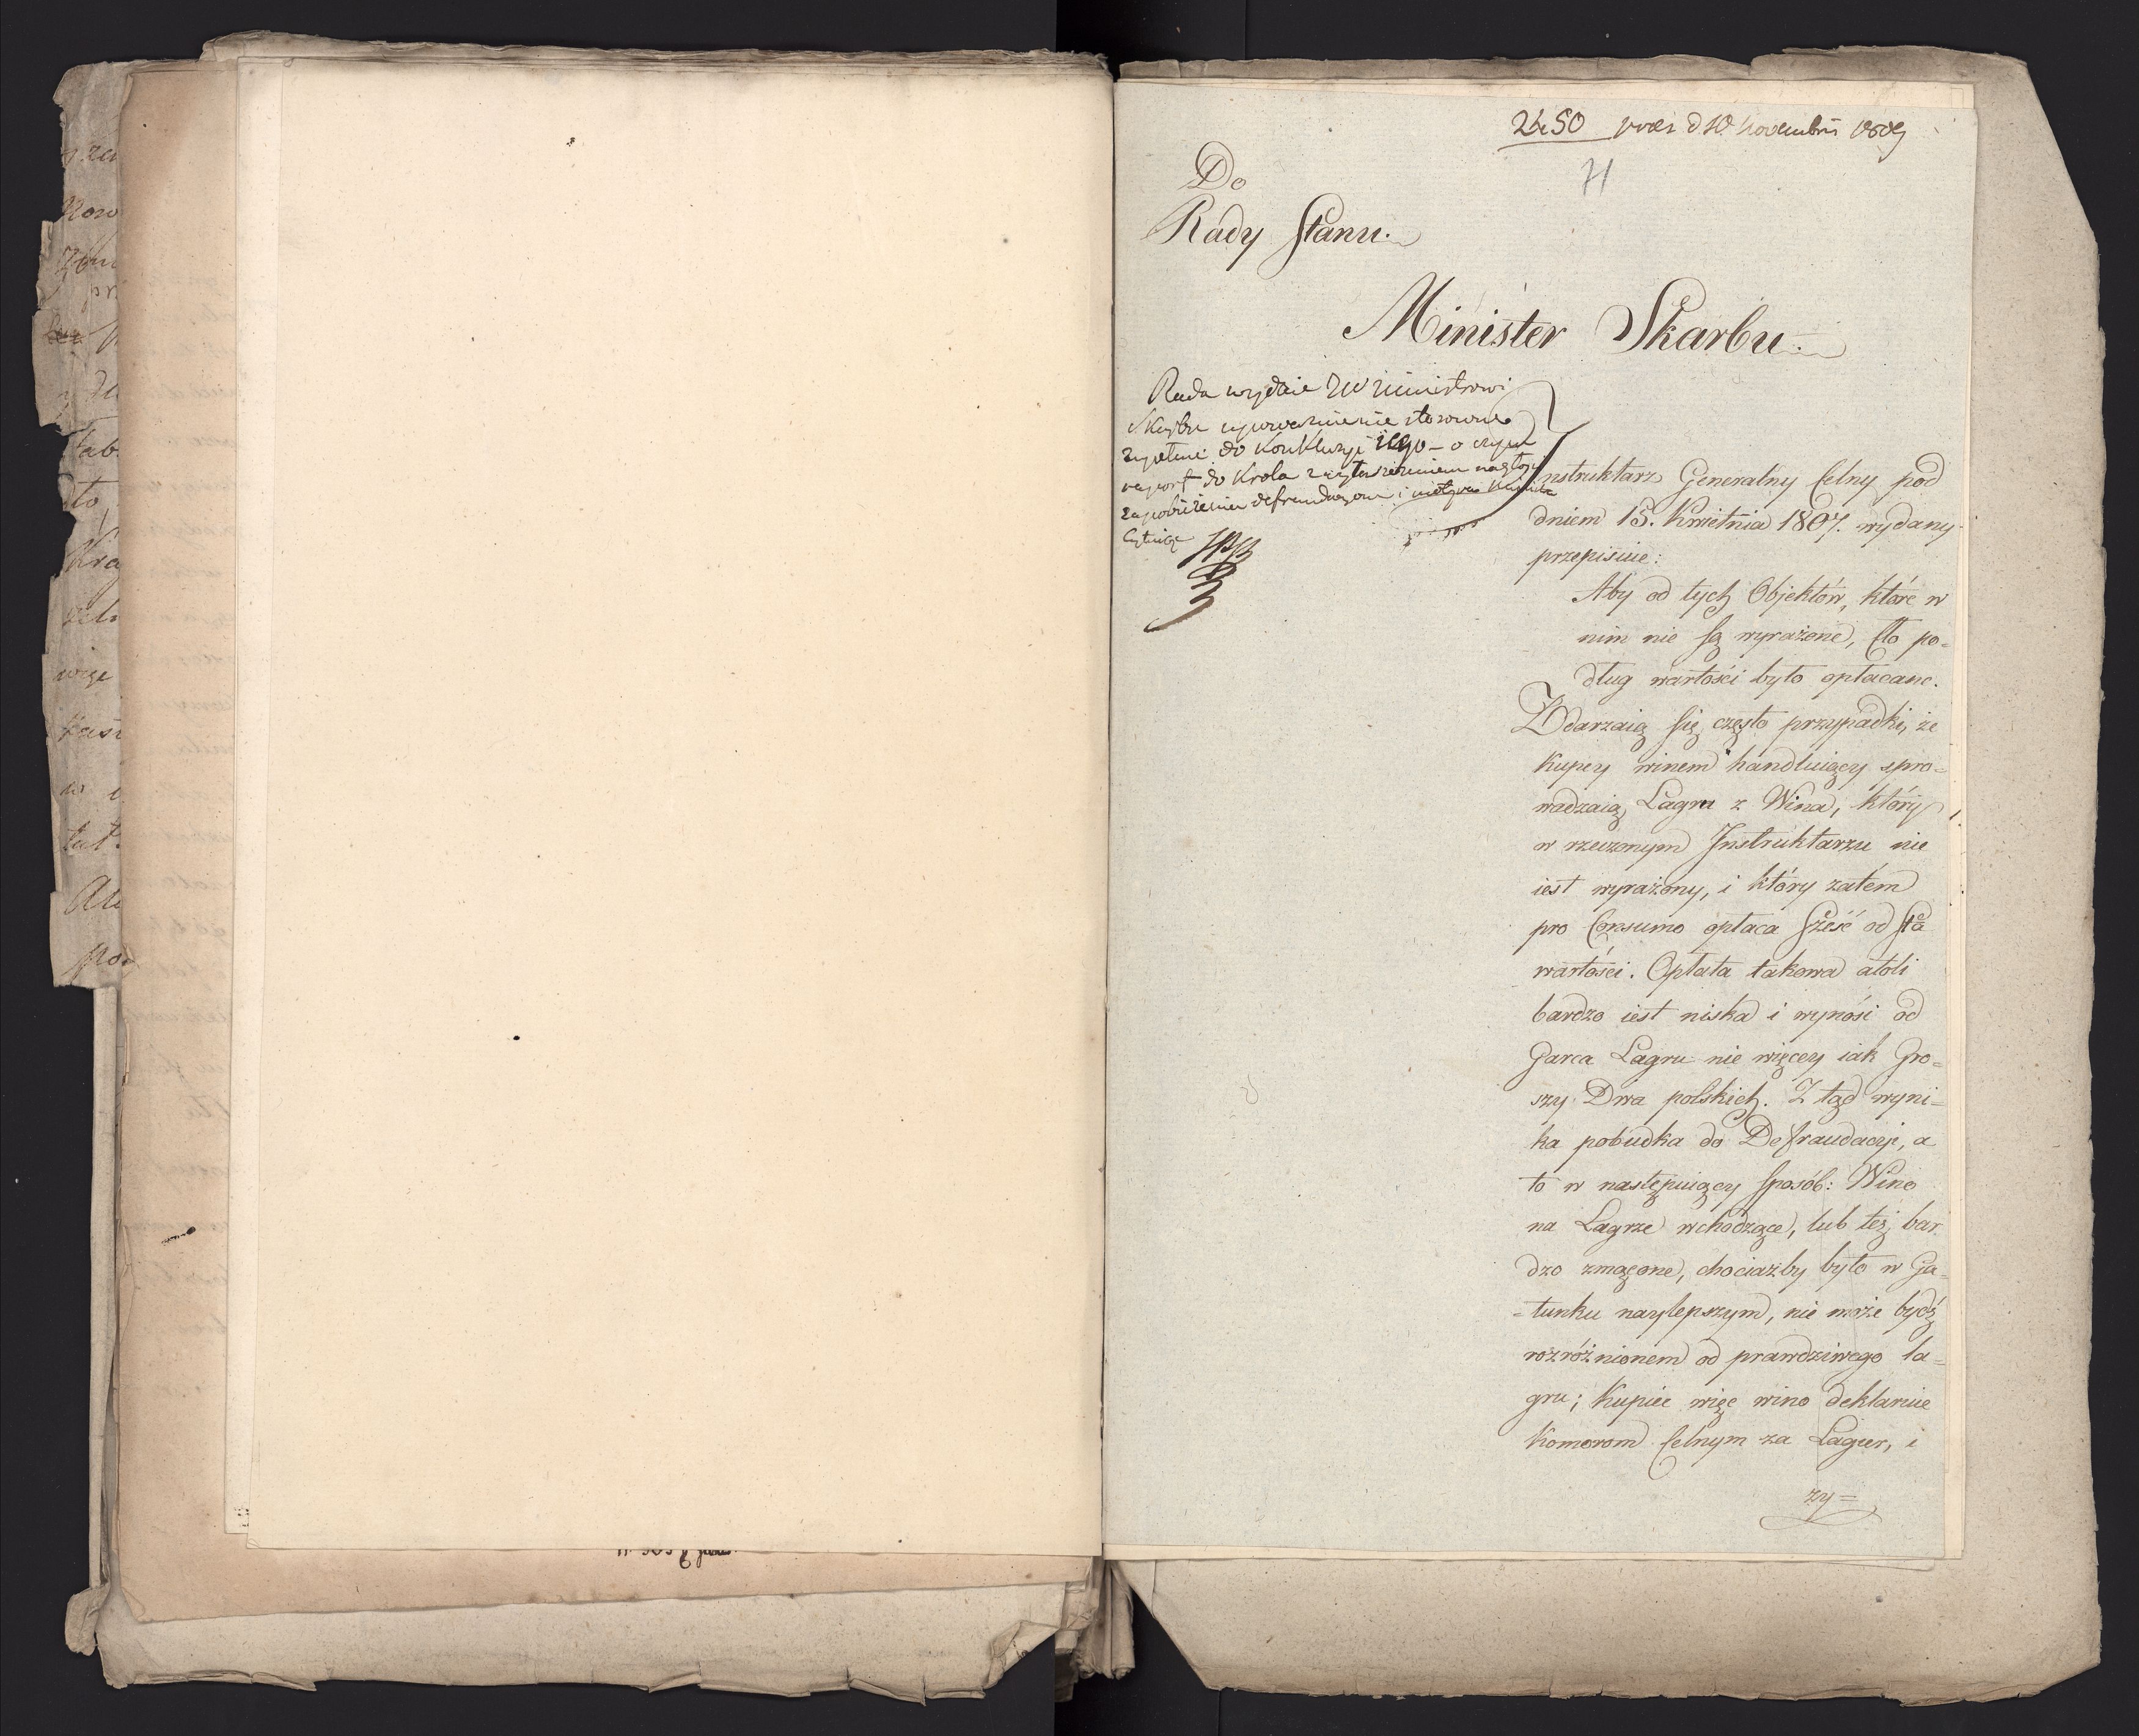 2450 praes d 10 Novembris 1809
71
Do
Rady Stanu.
Minister Skarbu.
Rada wyda JW Ministrowi
Skarbu upoważnienie stosowne
zupełnie do Konkluzyi iego - o czym
raport do Krola z wytłuszczeniem nagłości
zapobieżenia defraudacyom i
Instruktarz Generalny Celny pod
dniem 15. Kwietnia 1807. wydany
przepisuie:
Aby od tych Objektów, które w
nim nie są wyrażone, Cło po-
dług wartości było opłacane.
Zdarzaią się często przypadki, że
Kupcy winem handluiący spro-
wadzaią Lagru z Wina, który
w rzeczonym Instruktarzu nie
iest wyrażony, i który zatem
pro Consumo opłaca Sześć od Sta
wartości. Opłata takowa atoli
bardzo iest niska i wynosi od
Garca Lagru nie więcey iak Gro-
szy Dwa polskich. Z tąd wyni-
ka pobudka do Defraudacyi, a
to w następuiący Sposób: Wino
na Lagrze wchodzące, lub też bar
dzo zmącone, chociażby było w Ga-
-tunku naylepszym, nie może bydź
rozróżnionem od prawdziwego la-
gru; Kupiec więc wino deklaruie
Komorom Celnym za Lagier, i
zy-